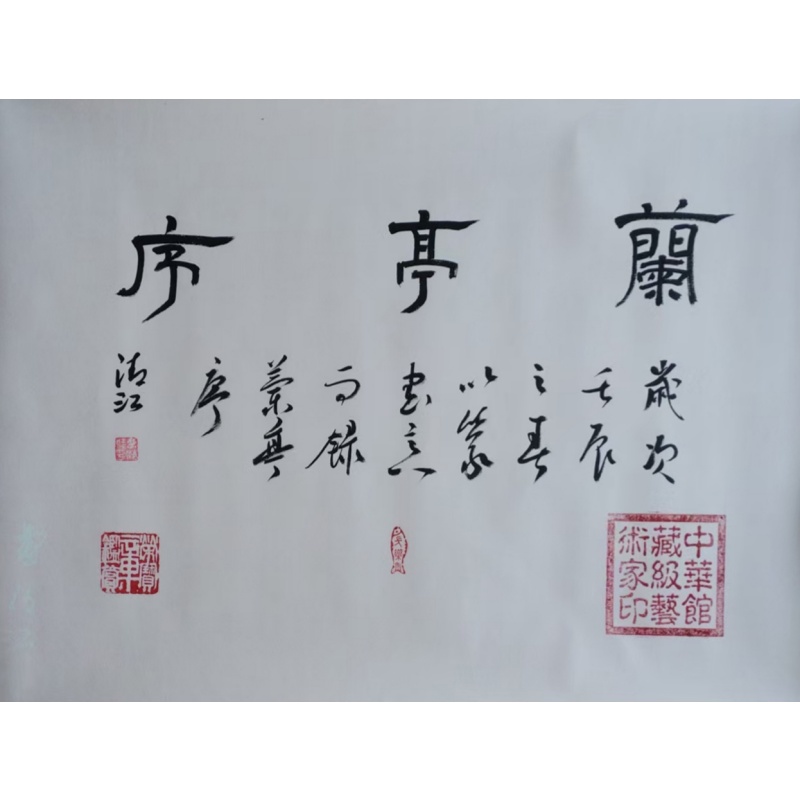 蘭亭序
歲次
壬辰
之春
以篆
書意
而錄
蘭亭
序
清江
中華館
藏級藝
術家印